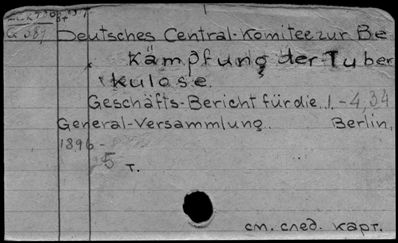 G 581
Deutsches Central-Komitee zur Be
kämpfung der Tuber
kulose.
Geschäfts-Bericht für die 1.-4,34
General-Versammlung. Berlin,
1896-
5 т.
см. след. карт.